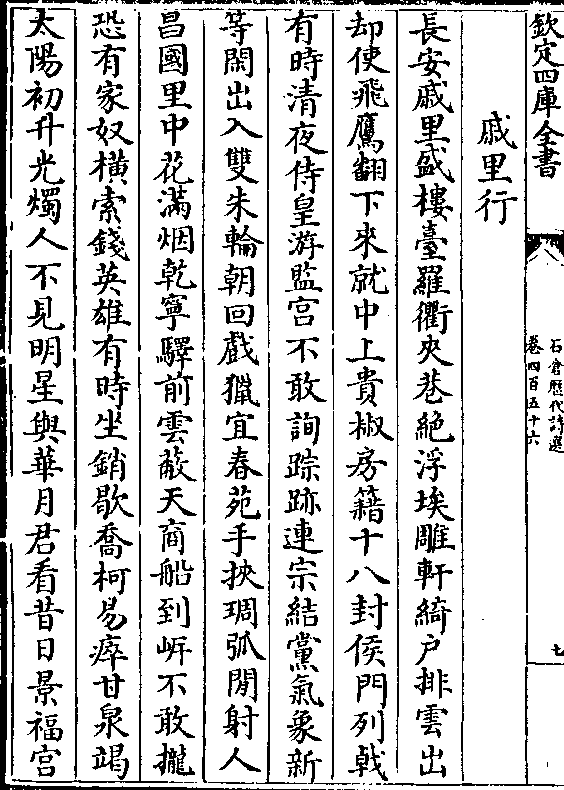 欽定四庫全書
石倉歷代詩選
卷四百五十六
七
戚里行
長安戚里盛樓臺羅衢夾巷絶浮埃雕軒綺户排雲出
却使飛鷹翻下來就中上貴椒房籍十八封侯門列戟
有時清夜侍皇游監宫不敢詢踪跡連宗結黨氣象新
等閑出入雙朱輪朝回戲獵宜春苑手挾琱弧閒射人
昌國里中花滿烟乾寧驛前雲蔽天商船到岸不敢攏
恐有家奴横索錢英雄有時坐銷歇喬柯易瘁甘泉竭
太陽初升光燭人不見明星與華月君看昔日景福宫